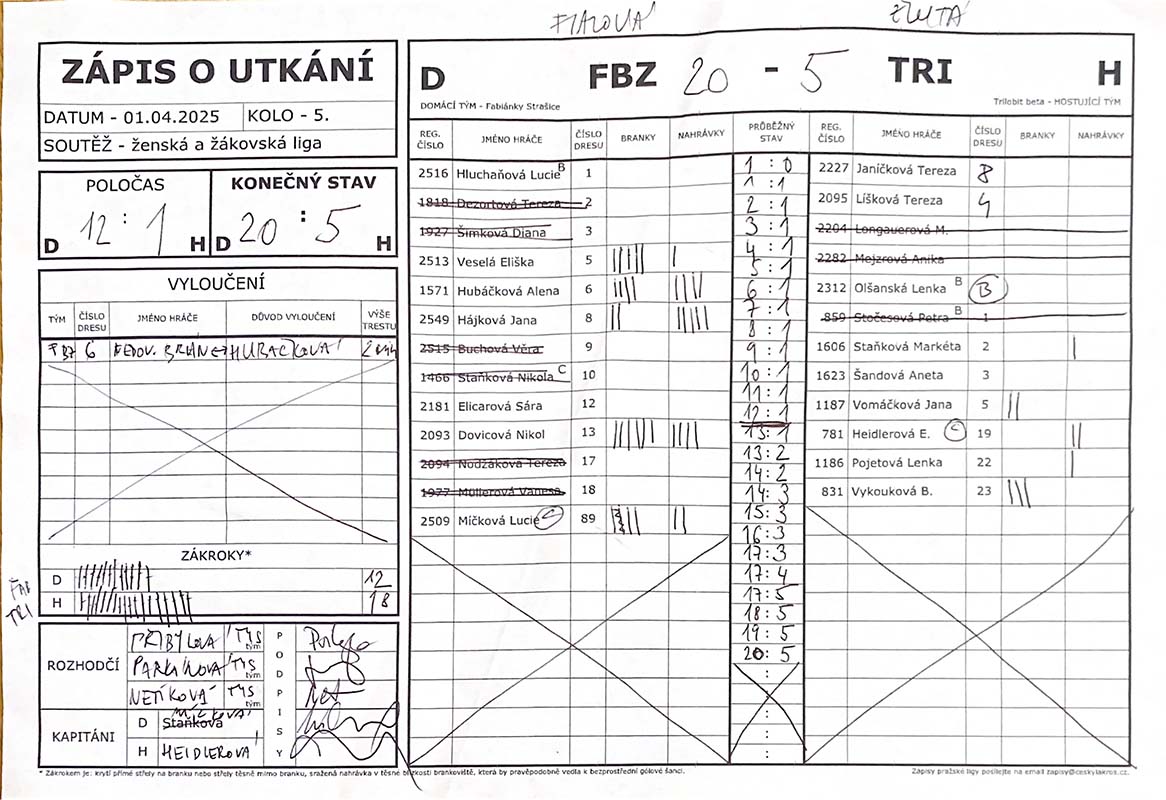 FIALOVÁ
ŽLUTÁ
ZÁPIS O UTKÁNÍ
DATUM - 01.04.2025 KOLO - 5.
SOUTĚŽ - ženská a žákovská liga
POLOČAS
D 12 : 1 H
KONEČNÝ STAV
D 20 : 5 H
VYLOUČENÍ
TÝM ČÍSLO DRESU JMÉNO HRÁČE DŮVOD VYLOUČENÍ VÝŠE TRESTU
FBZ 6 NEDOV. BRÁNĚNÍ HUBÁČKOVÁ 2 min
ZÁKROKY*
FAB D 12
TRI H 18
ROZHODČÍ
PŘIBYLOVÁ TYS tým
PARKÁNOVÁ TYS tým
NETÍKOVÁ TYS tým
PODPISY
KAPITÁNI
D Staňková MÍČKOVÁ
H HEIDLEROVÁ
D FBZ 20 - 5 TRI H
DOMÁCÍ TÝM - Fabiánky Strašice
Trilobit beta - HOSTUJÍCÍ TÝM
REG. ČÍSLO JMÉNO HRÁČE ČÍSLO DRESU BRANKY NAHRÁVKY PRŮBĚŽNÝ STAV REG. ČÍSLO JMÉNO HRÁČE ČÍSLO DRESU BRANKY NAHRÁVKY
2516 Hluchaňová Lucie B 1
1818 Dezortová Tereza 2
1927 Šimková Diana 3
2513 Veselá Eliška 5
1571 Hubáčková Alena 6
2549 Hájková Jana 8
2515 Buchová Věra 9
1466 Staňková Nikola C 10
2181 Elicarová Sára 12
2093 Dovicová Nikol 13
2094 Nodžáková Tereza 17
1977 Müllerová Vanesa 18
2509 Míčková Lucie C 89
1 : 0
1 : 1
2 : 1
3 : 1
4 : 1
5 : 1
6 : 1
7 : 1
8 : 1
9 : 1
10 : 1
11 : 1
12 : 1
13 : 1
13 : 2
14 : 2
14 : 3
15 : 3
16 : 3
17 : 3
17 : 4
17 : 5
18 : 5
19 : 5
20 : 5
2227 Janíčková Tereza 8
2095 Líšková Tereza 4
2204 Longauerová M.
2282 Mejzrová Anika
2312 Olšanská Lenka B B
859 Stočesová Petra B 1
1606 Staňková Markéta 2
1623 Šandová Aneta 3
1187 Vomáčková Jana 5
781 Heidlerová E. C 19
1186 Pojetová Lenka 22
831 Vykouková B. 23
* Zákrokem je: krytí přímé střely na branku nebo střely těsně mimo branku, sražená nahrávka v těsné blízkosti brankoviště, která by pravděpodobně vedla k bezprostřední gólové šanci.
Zápisy pražské ligy posílejte na email zapisy@ceskylakros.cz.